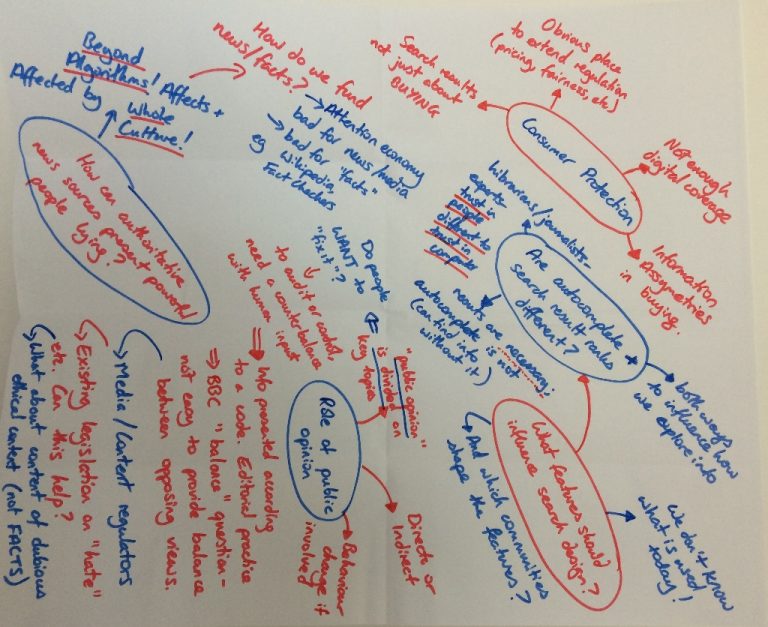 Beyond
Algorithms! Affects +
Affected by Whole
Culture!
How do we fund
news/facts?
→ Attention economy
bad for news/media
→ bad for "facts"
eg Wikipedia,
Fact Checkers
How can authoritative
news sources prevent powerful
people lying?
Search results
not just about
BUYING
Obvious place
to extend regulation
(pricing, fairness, etc)
Consumer Protection
Not enough
digital coverage
Information
Assymetries
in buying.
Librarians/journalists -
experts -
trust in
people
different to
trust in
computer
Are autocomplete +
search result ranks
different?
results are necessary:
autocomplete is not
(can find info
without it)
both ways how
to influence how
we explore info
What features should
influence search design?
And which communities
shape the features?
We don't know
what is used!
today!
Role of public
opinion
"public opinion"
is divided on
key topics
Do people
WANT to
"fix it"?
to audit or contest,
need a counterbalance
with human input
Direct or
Indirect
Behaviour
change if
involved
⇒ Info presented according
to a code. Editorial practice
⇒ BBC "balance" question -
not easy to provide balance
between opposing views.
Media/Content regulators
Existing legislation on "hate"
etc. Can this help?
What about content of dubious
ethical content (not FACTS)